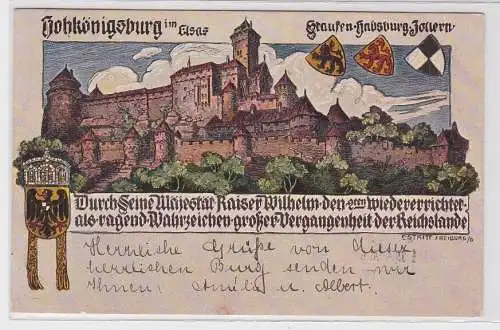 Hohkönigsburg im Elsas
Staufen-Habsburg-Zollern
Durch Seine Majestät Kaiser Wilhelm den 2ten wiedererrichtet
als ragend Wahrzeichen großer Vergangenheit der Reichslande
Herrliche Grüße von dieser
herrlichen Burg senden wir
Ihnen, u. Albert.